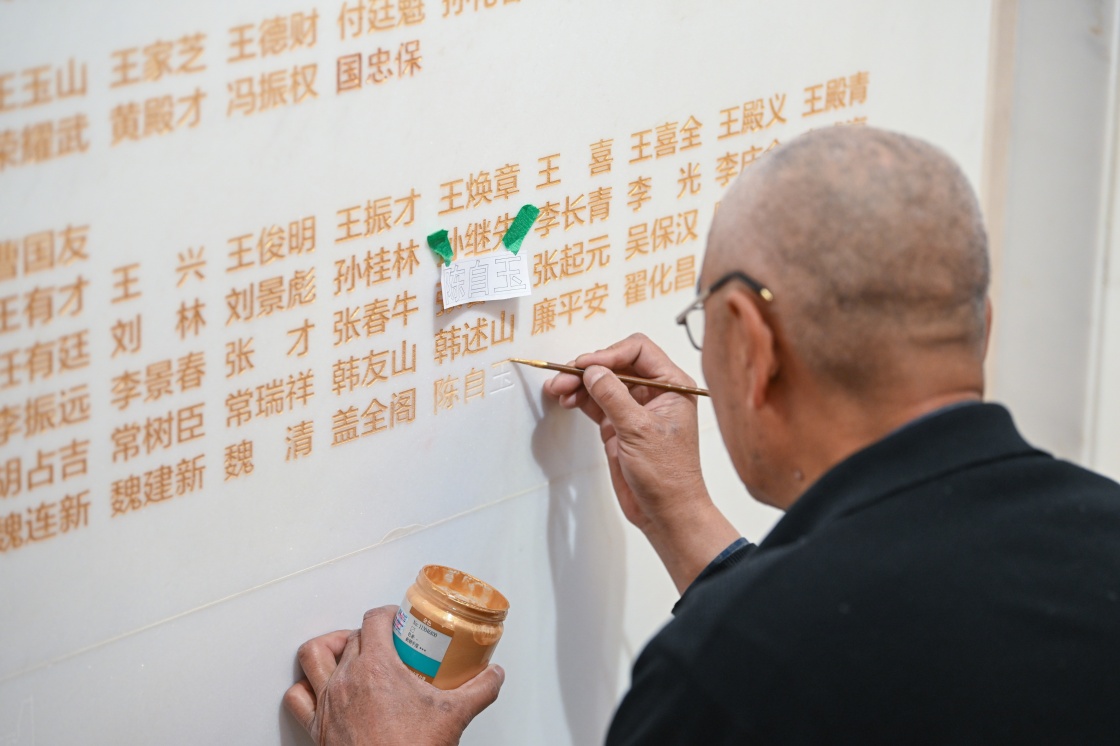 王玉山 王家芝 王德财 付廷魁
荣耀武 黄殿才 冯振权 国忠保
曹国友 王兴 王俊明 王振才 王焕章 王喜 王喜全 王殿义 王殿青
王有才 刘林 刘景彪 孙桂林 孙继先 李长青 李光
王有廷 李景春 张才 张春牛 张起元 吴保汉
李振远 常树臣 常瑞祥 韩友山 韩述山 廉平安 翟化昌
胡占吉 魏建新 魏清 盖全阁 陈自玉
魏连新
陈自玉